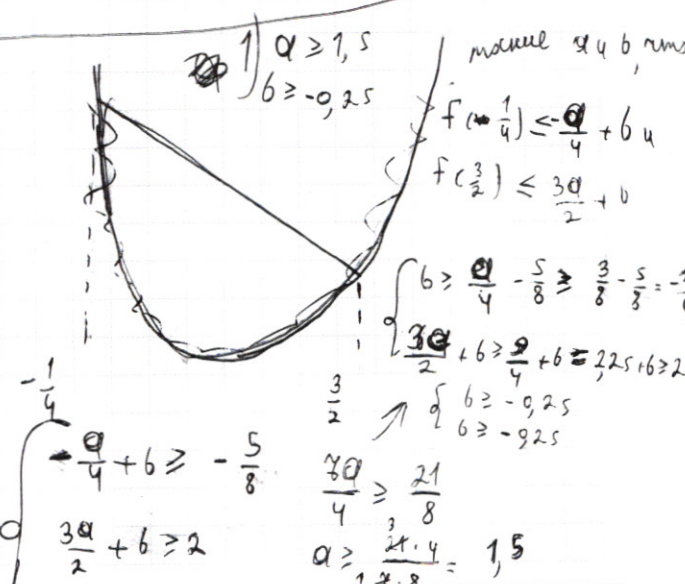 1) a ≥ 1,5
b ≥ -0,25
такие a и b, что
f(-1/4) ≤ -a/4 + b и
f(3/2) ≤ 3a/2 + b
b ≥ a/4 - 5/8 ≥ 3/8 - 5/8 = -
3a/2 + b ≥ 9/4 + b = 2,25 + b ≥ 2
b ≥ -0,25
b ≥ -0,25
-1/4
3/2
-a/4 + b ≥ -5/8
3a/2 + b ≥ 2
7a/4 ≥ 21/8
a ≥ 21·4/7·8 = 1,5
3